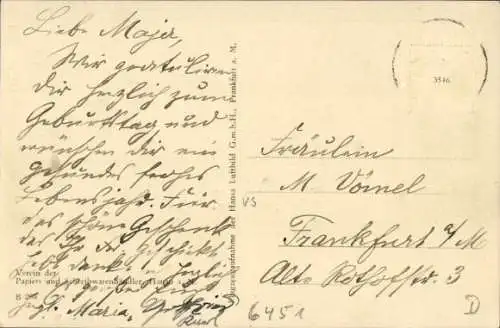 Liebe Maja,
Wir gratulieren
Dir herzlich zum
Geburtstag und
wünschen dir ein
gesundes frohes
Lebensjahr. Für
das schöne Geschenk
das Ihr geschickt
habt Dank
Maria,
Verein der
Papier- und Schreibwarenhändler Hanau a. M.
Fliegeraufnahme der Hansa Luftbild G.m.b.H., Frankfurt a. M.
3516
Fräulein
M. Vömel
Frankfurt a/M
Alte Rothofstr. 3
VS
6451
D